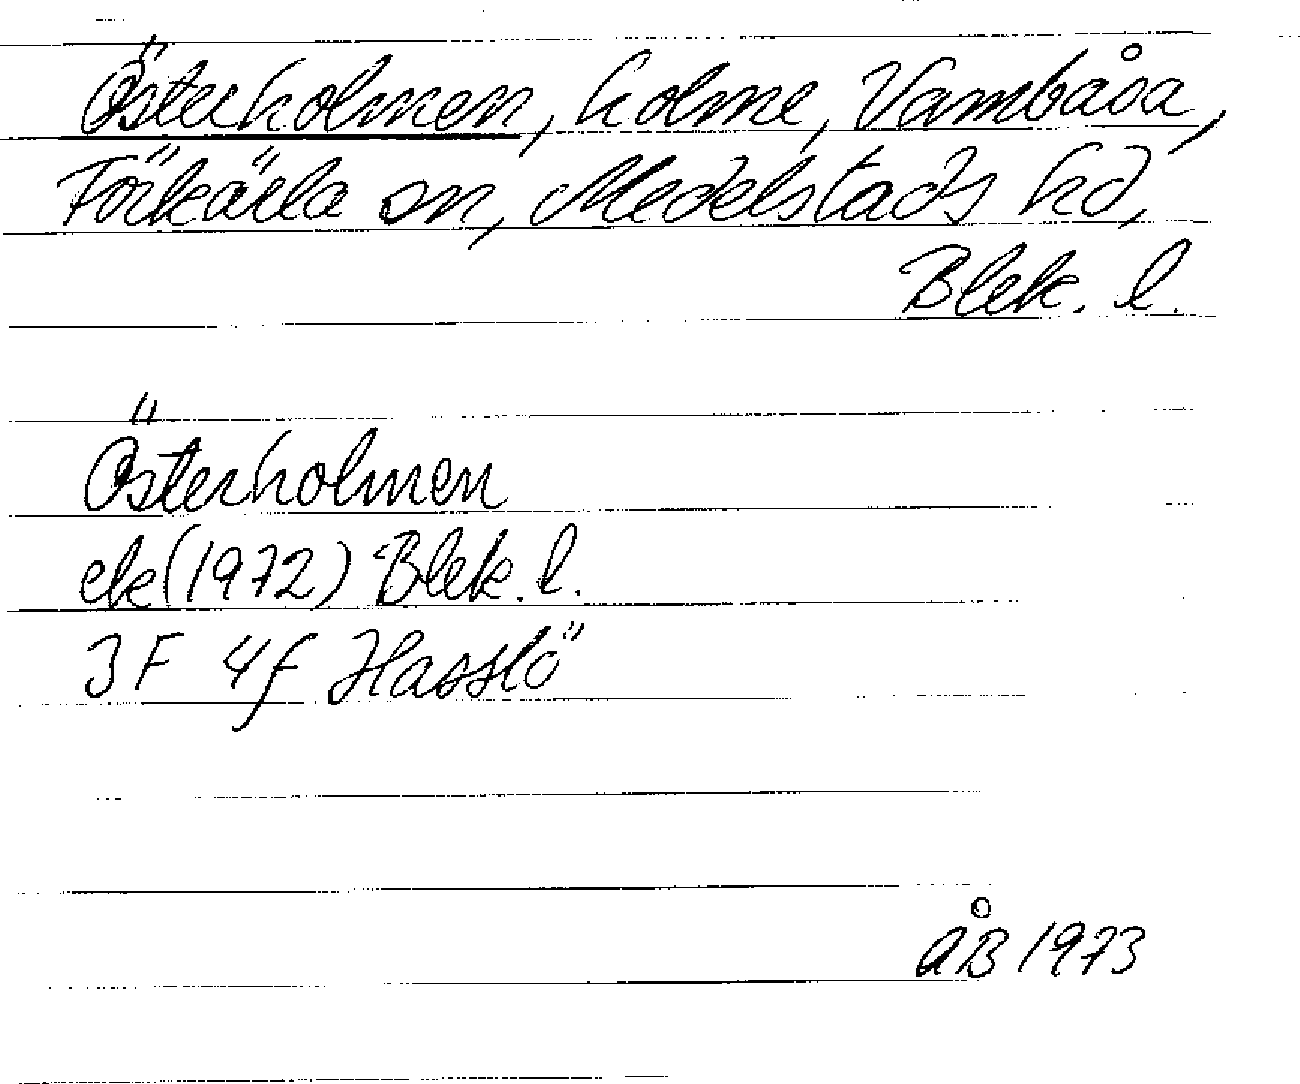 Österholmen, holme, Vambåsa,
Förkärla sn, Medelstads hd,
Blek. l.
Österholmen
ek (1972) Blek. l.
3F 4f Hasslö
ÅB 1973